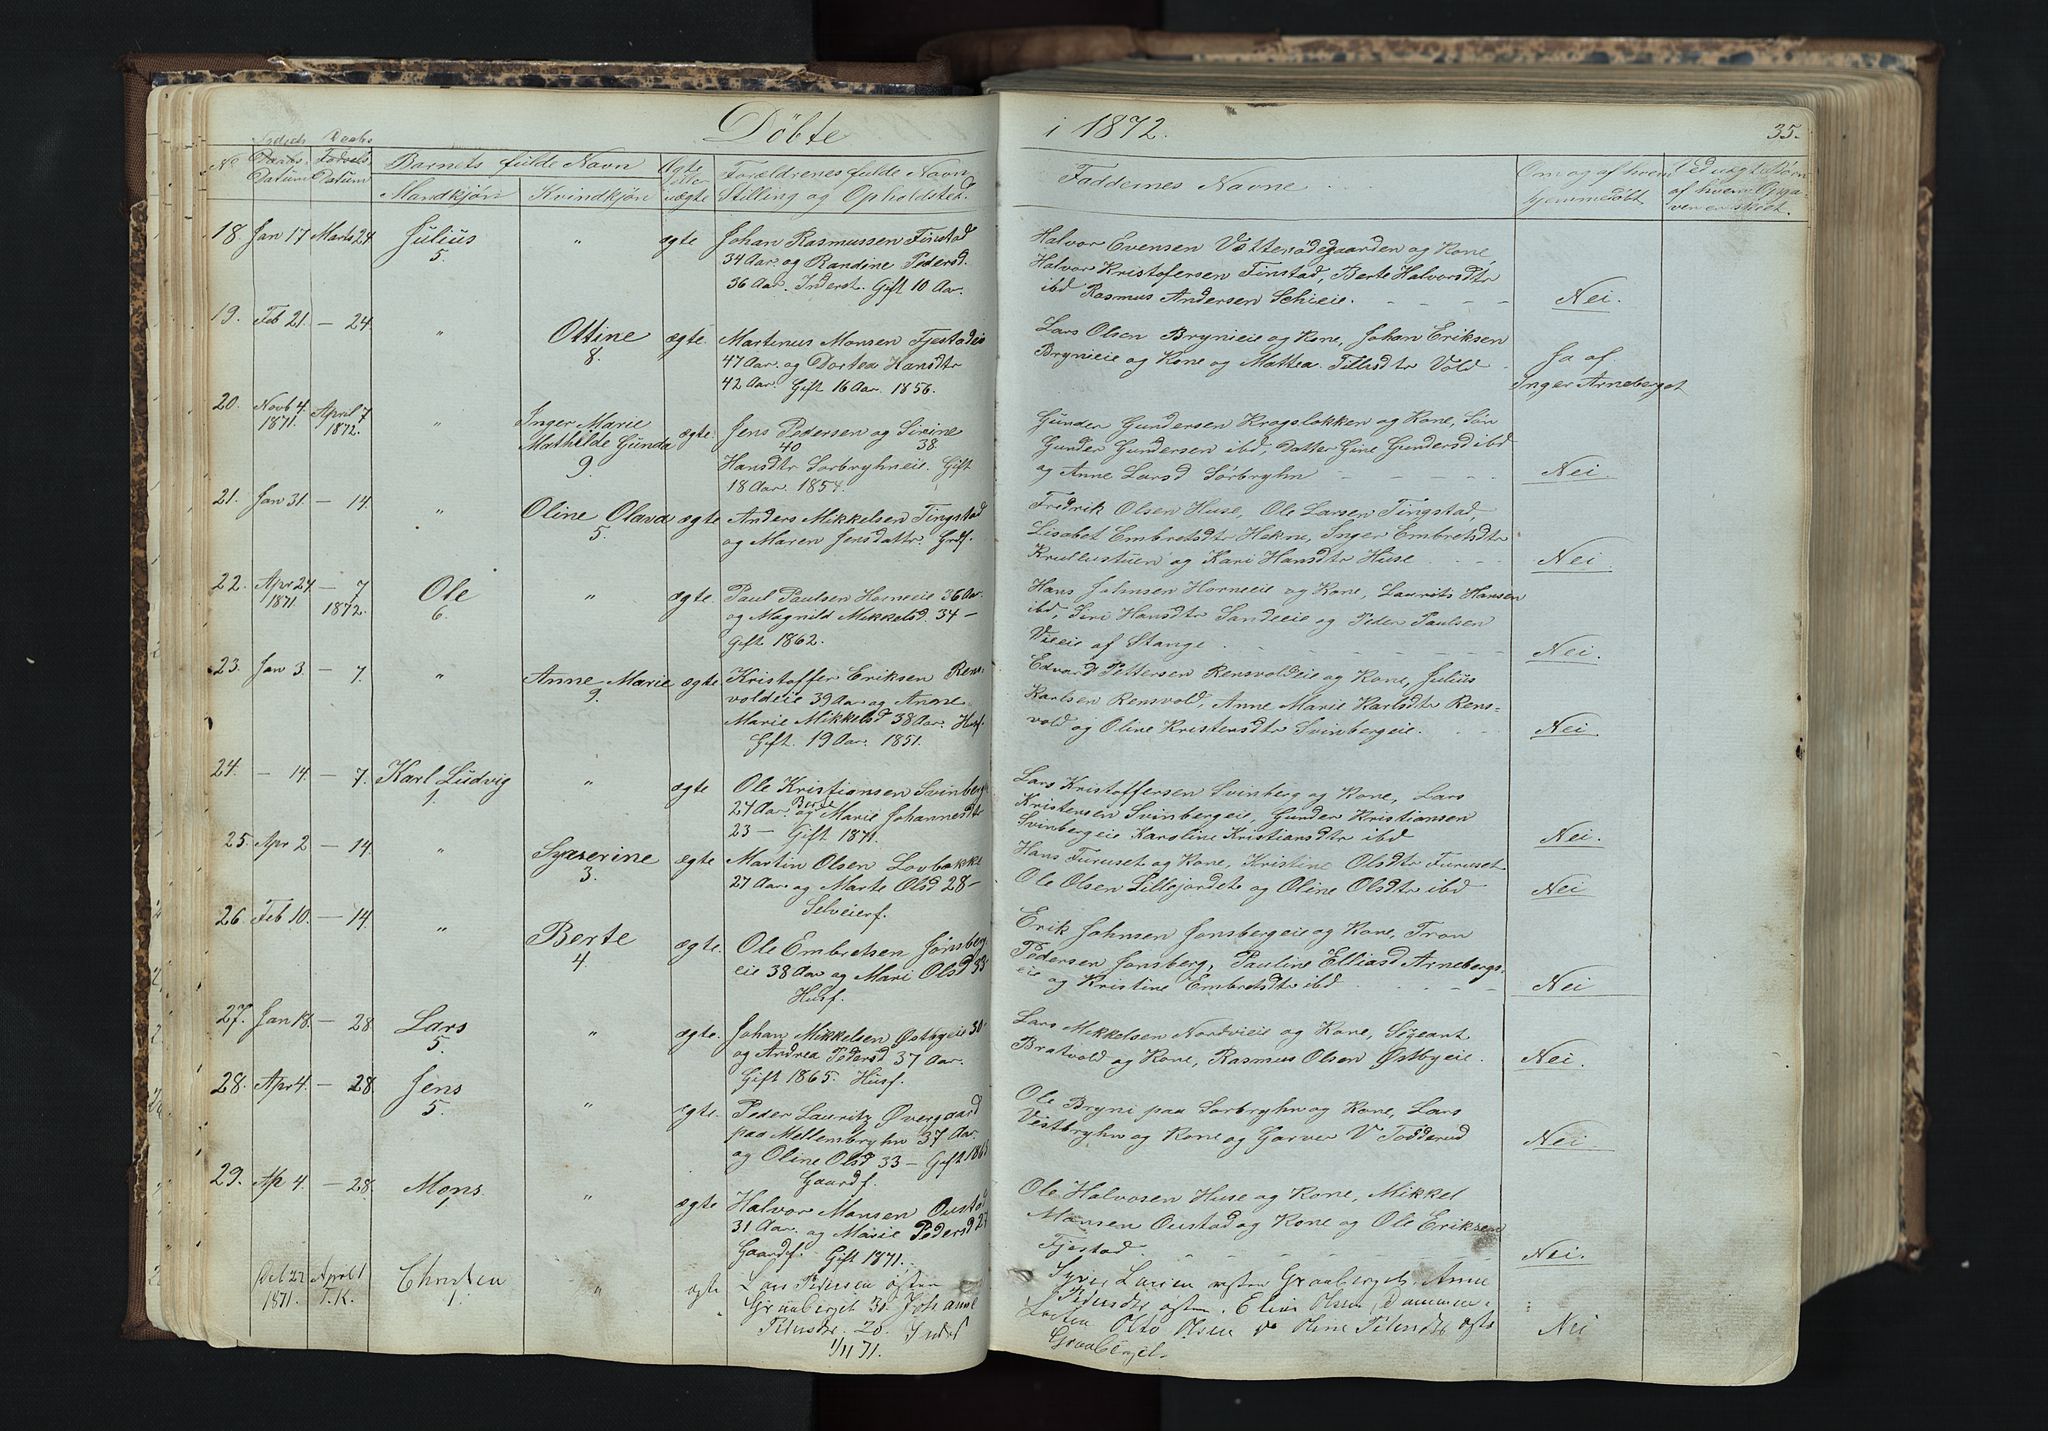 Döbte
i 1872.
35.
Fødsels Daabs
No Daabs- Fødsels Barnets fulde Navn Ægte Forældrenes fulde Navn Faddernes Navne Om og af hvem Ved uægte Børn
Datum Datum Mandkjøn Kvindkjøn eller uægte Stilling og Opholdsted. hjemmedøbt af hvem Opga-
ven er skeet.
18. Jan 17 Marts 24 Julius " ægte Johan Rasmussen Finstad
5. 34 Aar og Randine Pedersd.
36 Aar. Inderst. Gift 10 Aar.
Halvor Evensen Vøttenødegaarden og Kone,
Halvor Kristofersen Finstad, Berte Halvorsdtr
ibd Rasmus Andersen Schieie. Nei.
19. Feb 21. — 24. " Ottine ægte Martinus Monsen Fjestadeie
8. 47 Aar. og Dortea Hansdtr
42 Aar. Gift 16 Aar. 1856.
Lars Olsen Brynieie og Kone, Johan Eriksen
Brynieie og Kone og Mattea Tillisdtr Vold Ja af
Inger Arneberget
20. Novb 4. April 7 " Inger Marie ægte. Jens Pedersen og Sirine
1871. 1872. Mathilde Gunda 40 38.
9. Hansdtr Sorbryhneie. Gift
18 Aar. 1854.
Gunder Gundersen Kragsløkken og Kone, Søn
Gunder Gundersen ibd, Datter Gine Gundersd ibd
og Anne Larsd Sørbryhn Nei
21. Jan 31. — 14. " Oline Olava ægte Anders Mikkelsen Tingstad
5. og Maren Jensdattr. Grdf.
Fredrik Olsen Huse, Ole Larsen Tingstad,
Lisabet Embretsdtr Hekne, Inger Embretsdtr
Krullustuen og Kari Hansdtr Huse Nei
22. Apr 24. — 7 Ole " ægte. Paul Paulsen Horneeie 36 Aar.
1871. 1872. 6. og Magnild Mikkelsd. 34 —
Gift 1862.
Hans Johnsen Horneeie og Kone, Laurits Hansen
ibd, Siri Hansdtr Sandeeie og Peder Paulsen
Vieeie af Stange Nei.
23. Jan 3. — 7. " Anne Marie ægte Kristoffer Eriksen Rens-
9. voldeie 39 Aar og Anne
Marie Mikkelsd 38 Aar. Husf.
Gift. 19 Aar. 1851.
Edvard Pettersen Rensvoldeie og Kone, Julius
Karlsen Rensvold, Anne Marie Karlsdtr Rens-
vold og Oline Kristensdtr Svinbergeie. Nei
24. — 14. — 7. Karl Ludvig " ægte Ole Kristiansen Svinberg
1. 27 Aar. og Berte Marie Johannesdtr
23 — Gift 1871.
Lars Kristoffersen Svinberg og Kone, Lars
Kristensen Svinbergeie, Gunder Kristiansen
Svinbergeie Karoline Kristiansdtr ibd Nei.
25. Apr 2 — 14. " Syverine ægte Martin Olsen Lovbakke
3. 27 Aar og Marte Olsd 28 —
Selveierf.
Hans Furuset og Kone, Kristine Olsdtr Furuset
Ole Olsen Lillejordet og Oline Olsdtr ibd Nei
26. Feb 10. — 14. " Berte ægte. Ole Embretsen Jønsberg
4. eie 38 Aar og Mari Olsd 33
Husf.
Erik Johnsen Jonsbergeie og Kone, Tron
Pedersen Jonsberg, Pauline Elliasd Arnebergs-
eie og Kristine Embretsdtr ibd Nei
27. Jan 18. — 28. Lars " ægte. Johan Mikkelsen Østbyeie 30
5. og Andrea Pedersd 37 Aar.
Gift 1865. Husf.
Lars Mikkelsen Nordvieie og Kone, Sigeant
Bratvold og Kone, Rasmus Olsen Østbyeie. Nei.
28. Apr 4. — 28. Jens " ægte. Peder Lauritz Øvergaard
5. paa Mellembryhn 37 Aar
og Oline Olsd 33 — Gift 186
Gaardf.
Ole Bryni paa Sorbryhn og Kone, Lars
Vestbryhn og Kone og Garver V Tødderud Nei
29. Ap 4. — 28. Mons " ægte Halvor Monsen Oustad
1. 31 Aar. og Marie Pedersd 27
Gaardf. Gift 1871.
Ole Halvosen Huse og Kone, Mikkel
Monsen Oustad og Kone og Ole Eriksen
Fjestad. Nei.
Det 22 April 1 Christen " ægte Lars Pedersen østen
1871. T.K. 1. Graaberget 31. Johanne
Pedersdtr. 20. Inderst
1/11 71.
Syver Larsen østen Graaberget, Anne
Pedersdtr østen. Elias Olsen, Dammen
Otto Olsen Oline
Graaberget. Nei